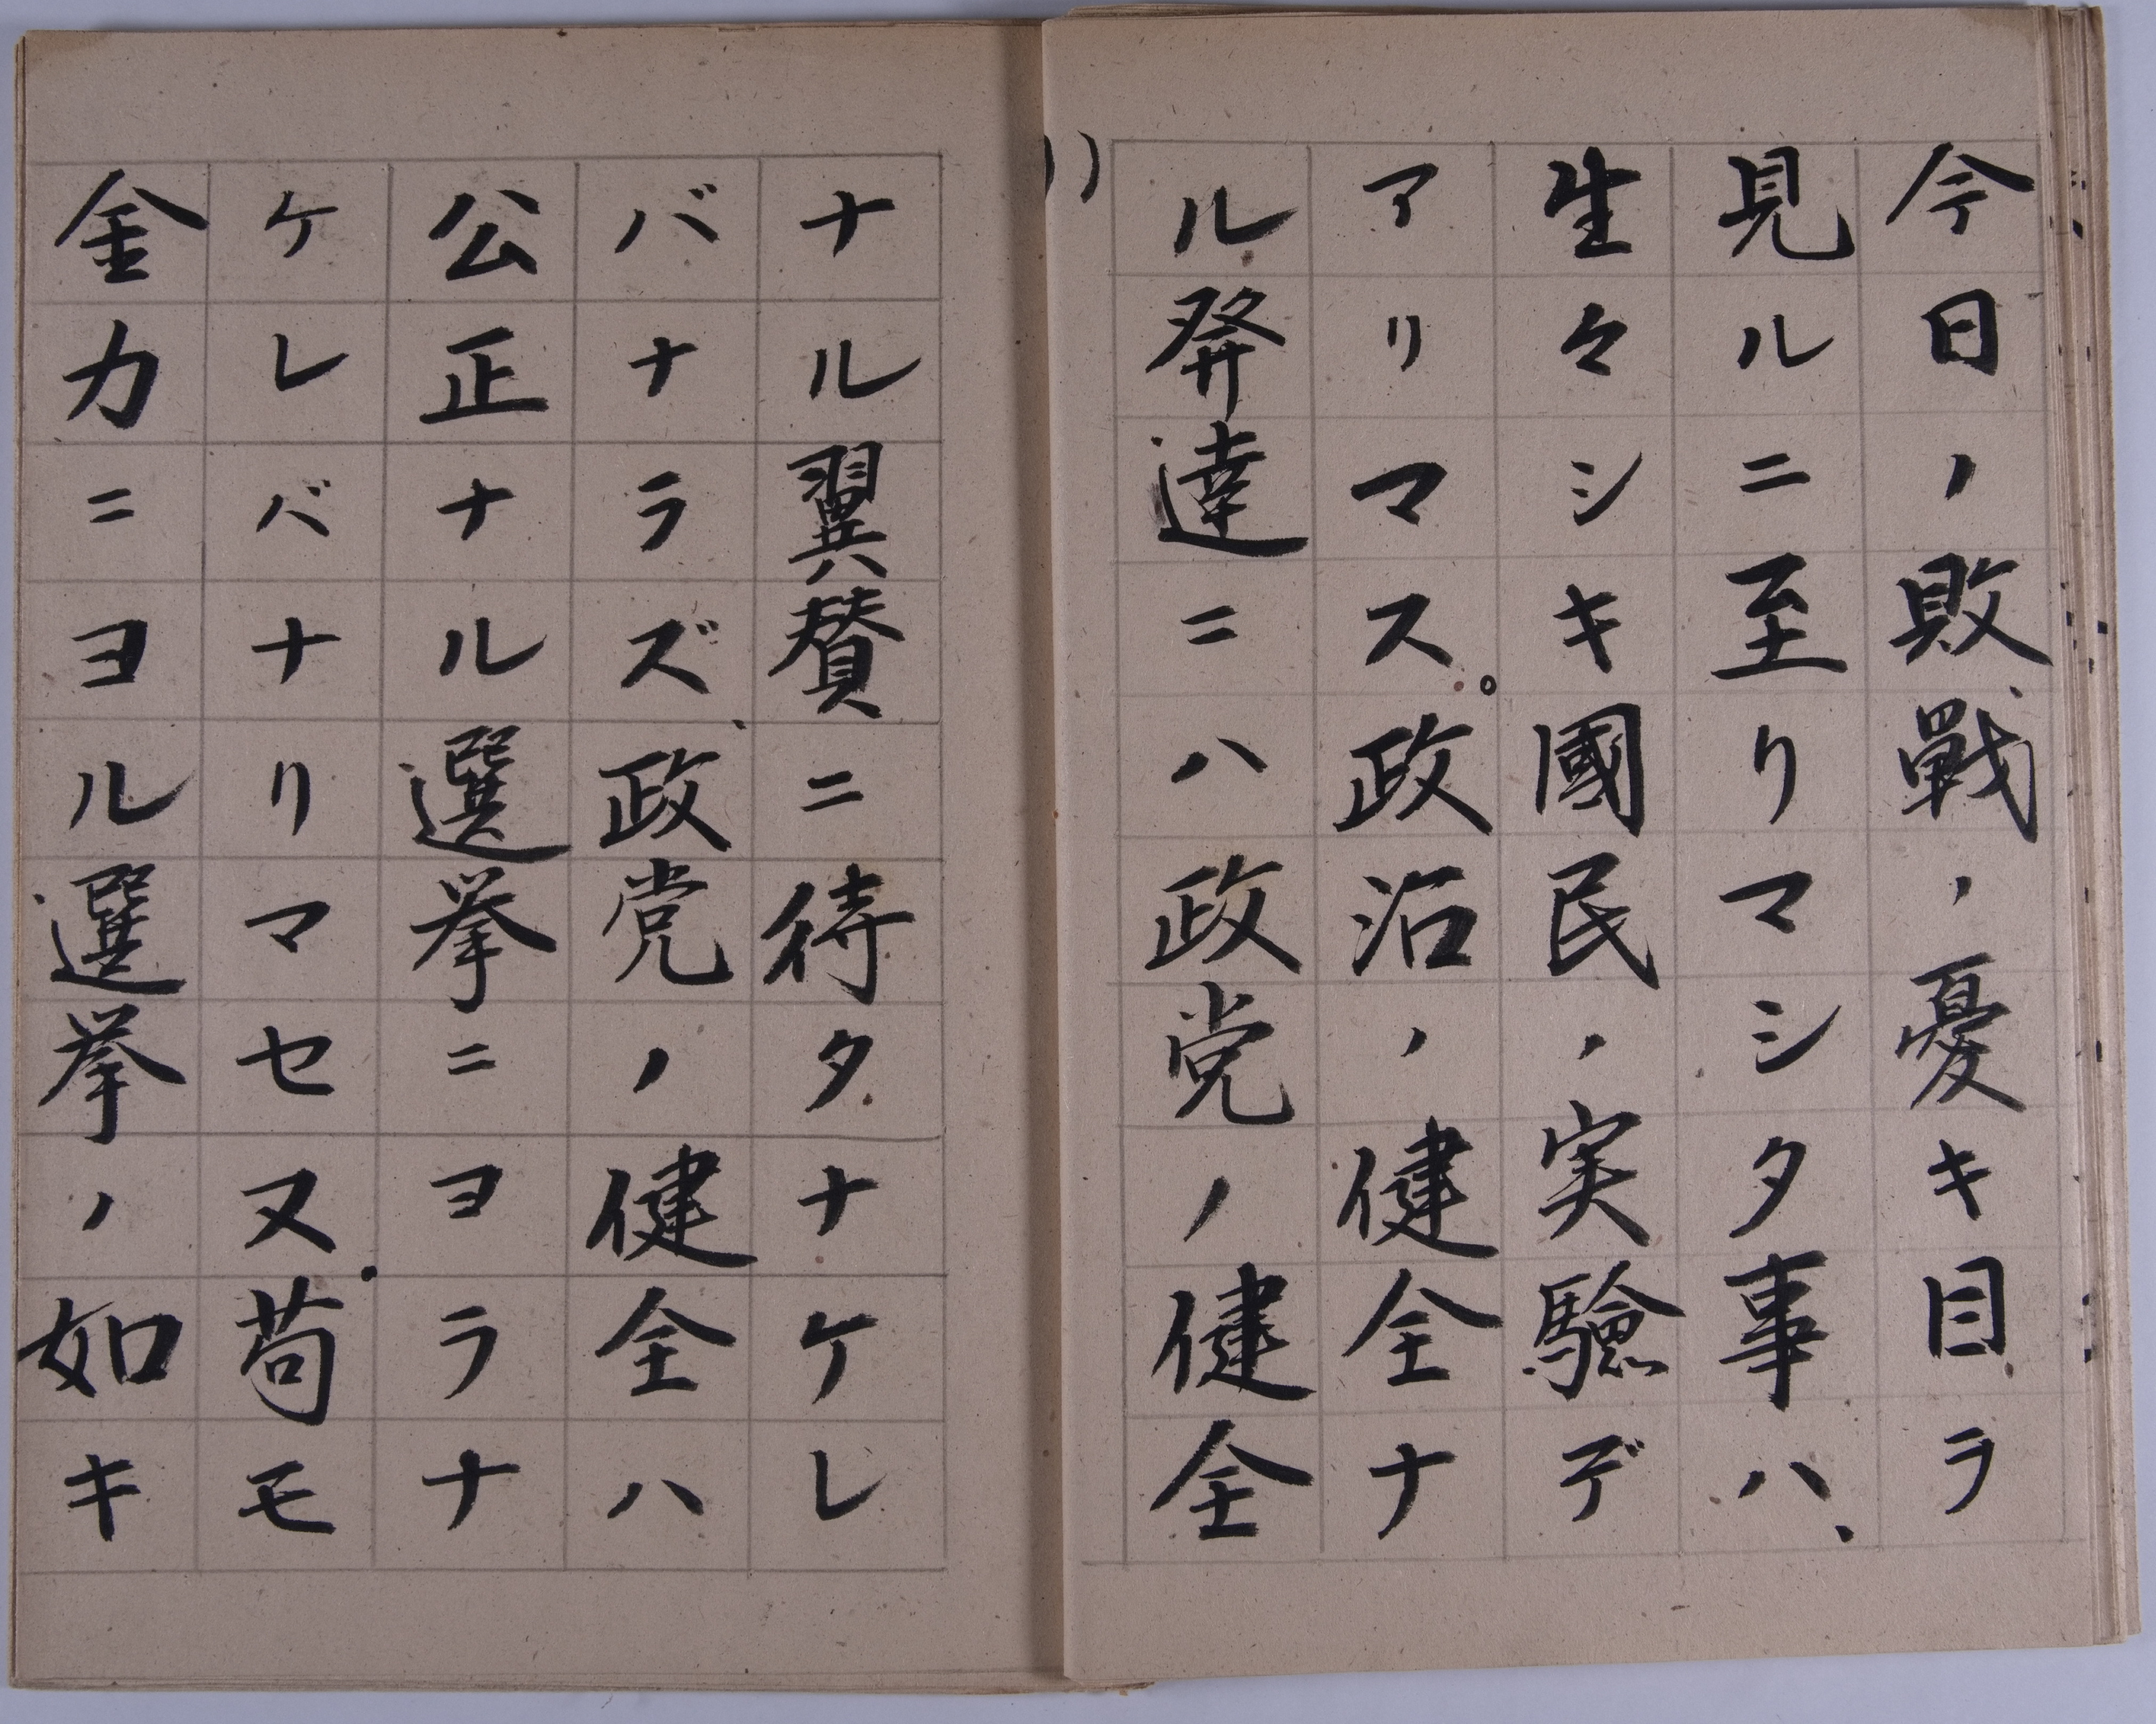 今日ノ敗戦ノ憂キ目ヲ
見ルニ至リマシタ事ハ、
生々シキ國民ノ実験デ
アリマス。政治ノ健全ナ
ル発達ニハ政党ノ健全
ナル翼賛ニ待タナケレ
バナラズ、政党ノ健全ハ
公正ナル選挙ニヨラナ
ケレバナリマセヌ。苟モ
金力ニヨル選挙ノ如キ